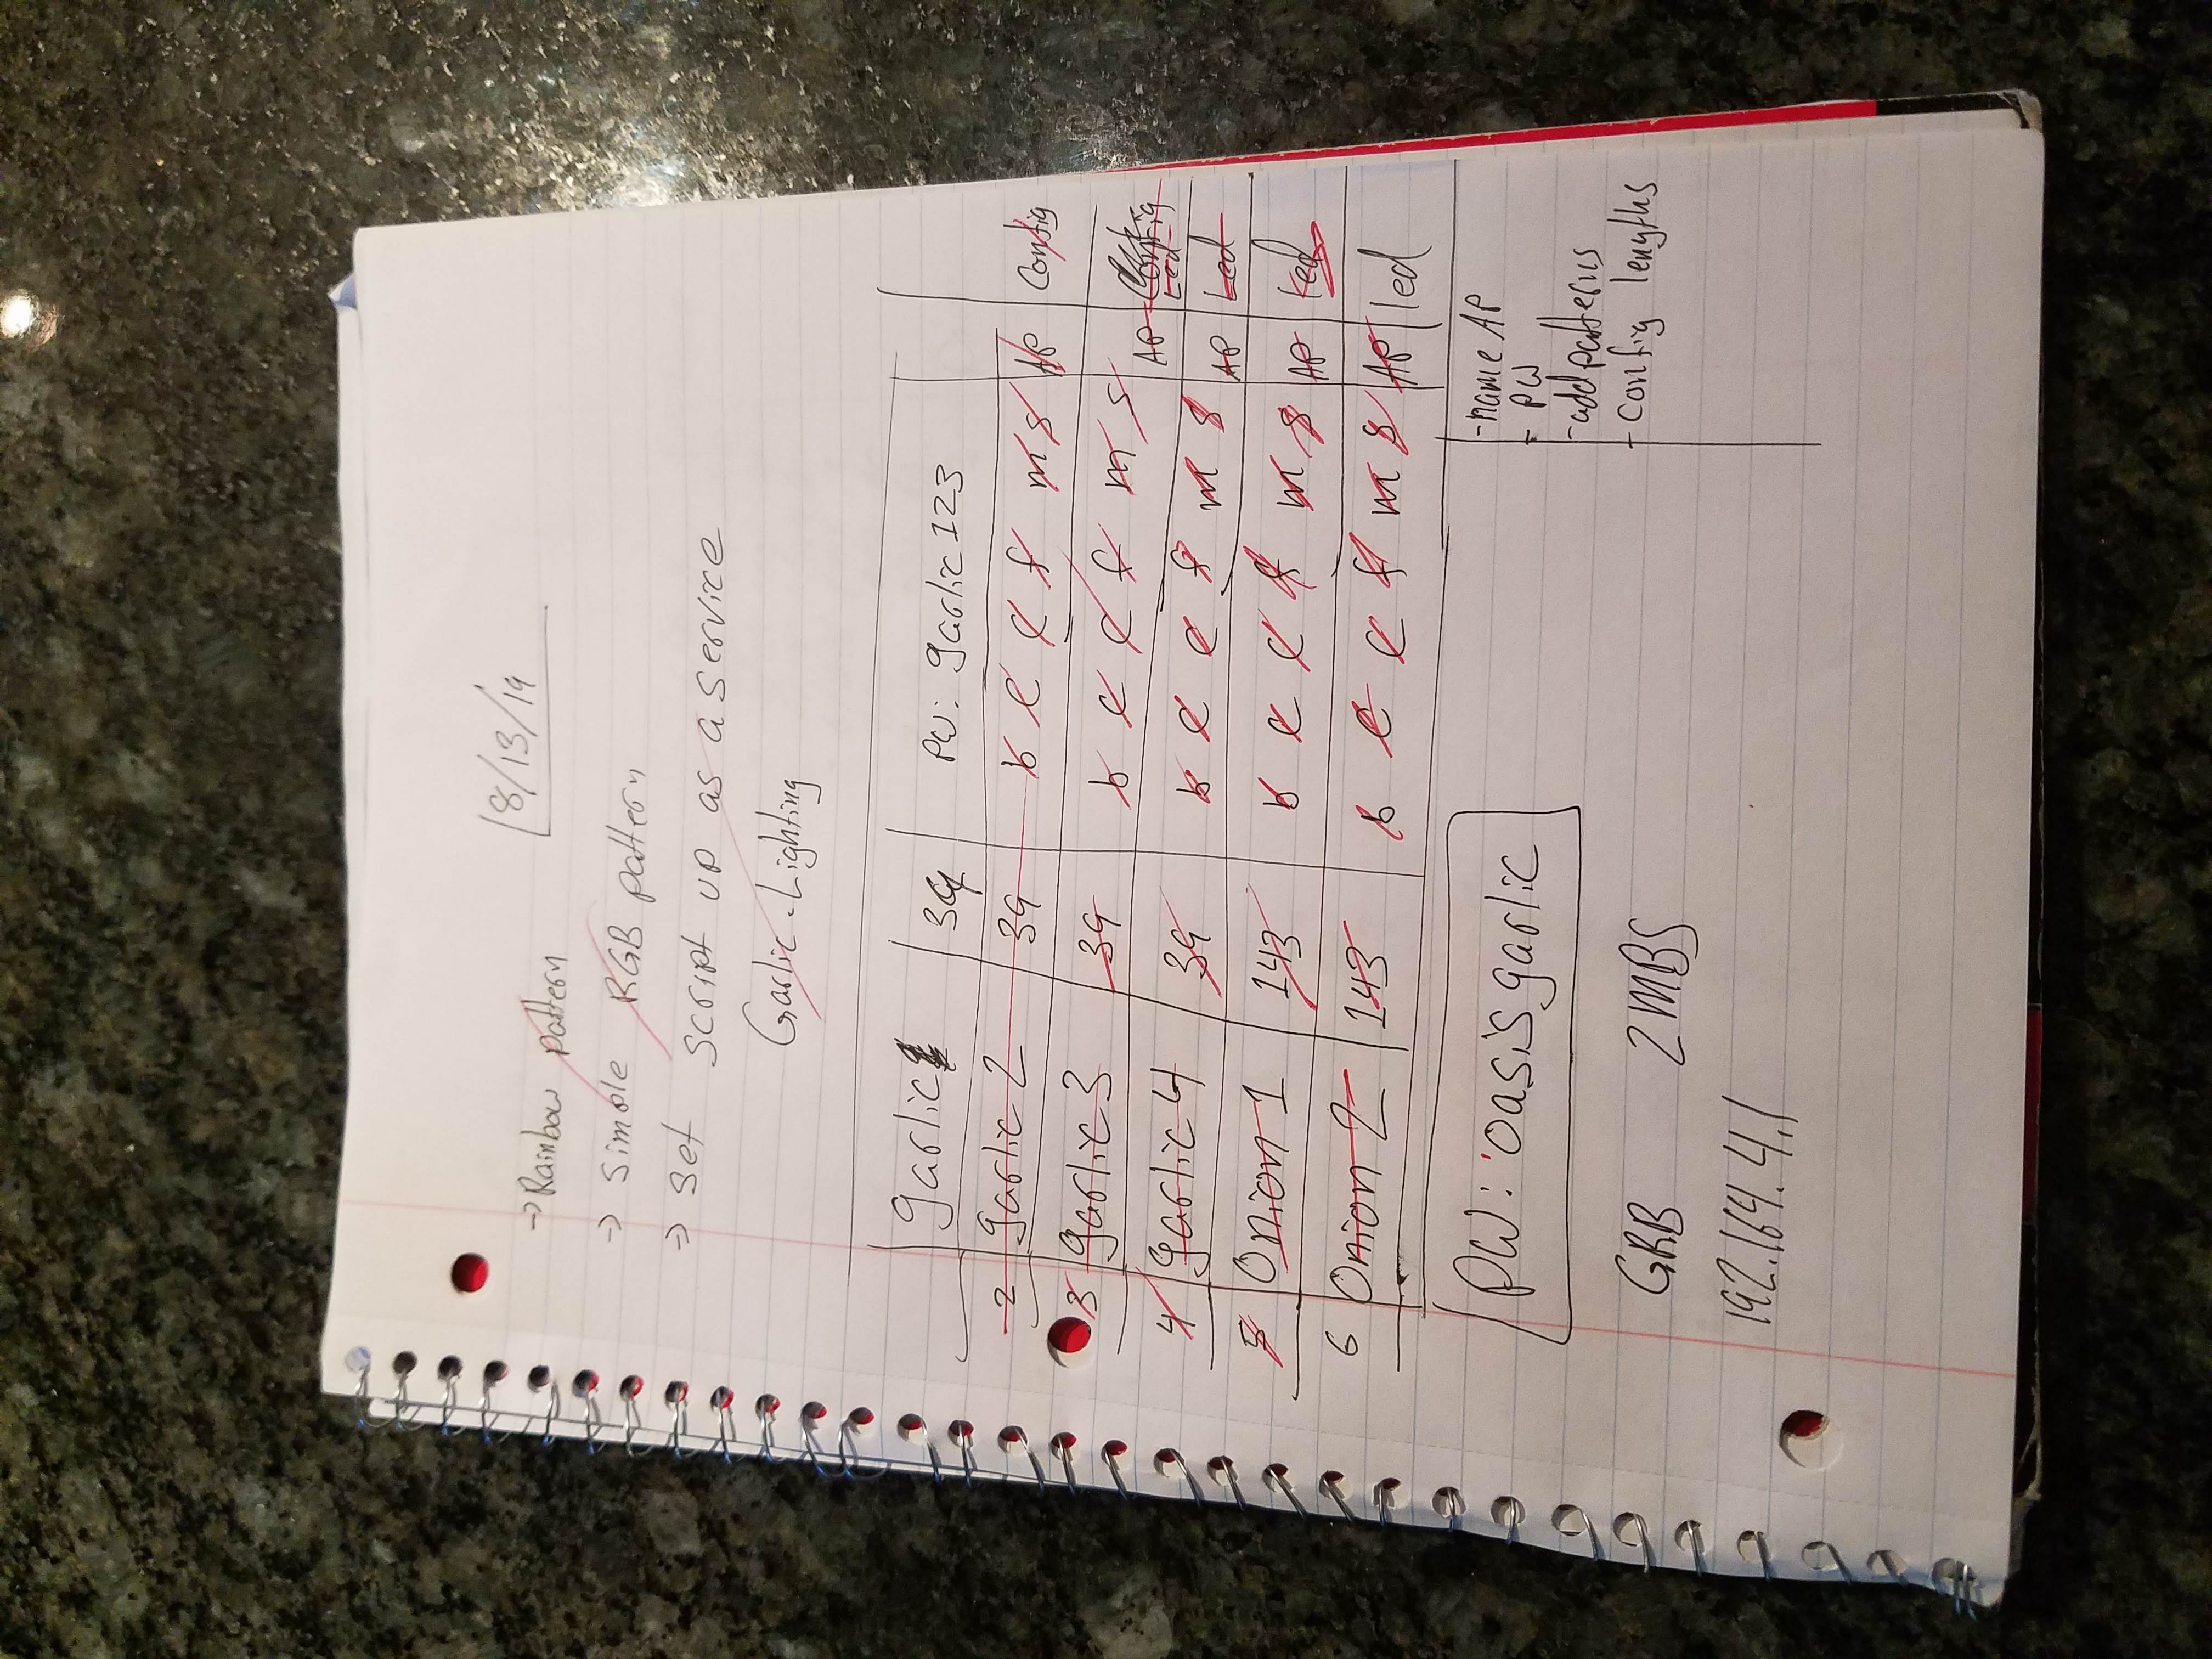 8/13/19
→ Rainbow pattern
→ Simple RGB pattern
→ Set script up as a service
Garlic.Lighting
garlic 39 PW: garlic123
2 garlic 2 39 b e e f m s AP Config
3 garlic 3 39 b e e f m s AP Config
Led
4 garlic 4 39 b e e f m s AP Led
5 Onion 1 143 b e e f m s AP Led
6 Onion 2 143 b e e f m s AP led
PW: oasisgarlic
GRB 2MBS
192.164.4.1
- name AP
- PW
- add patterns
- Config lengths